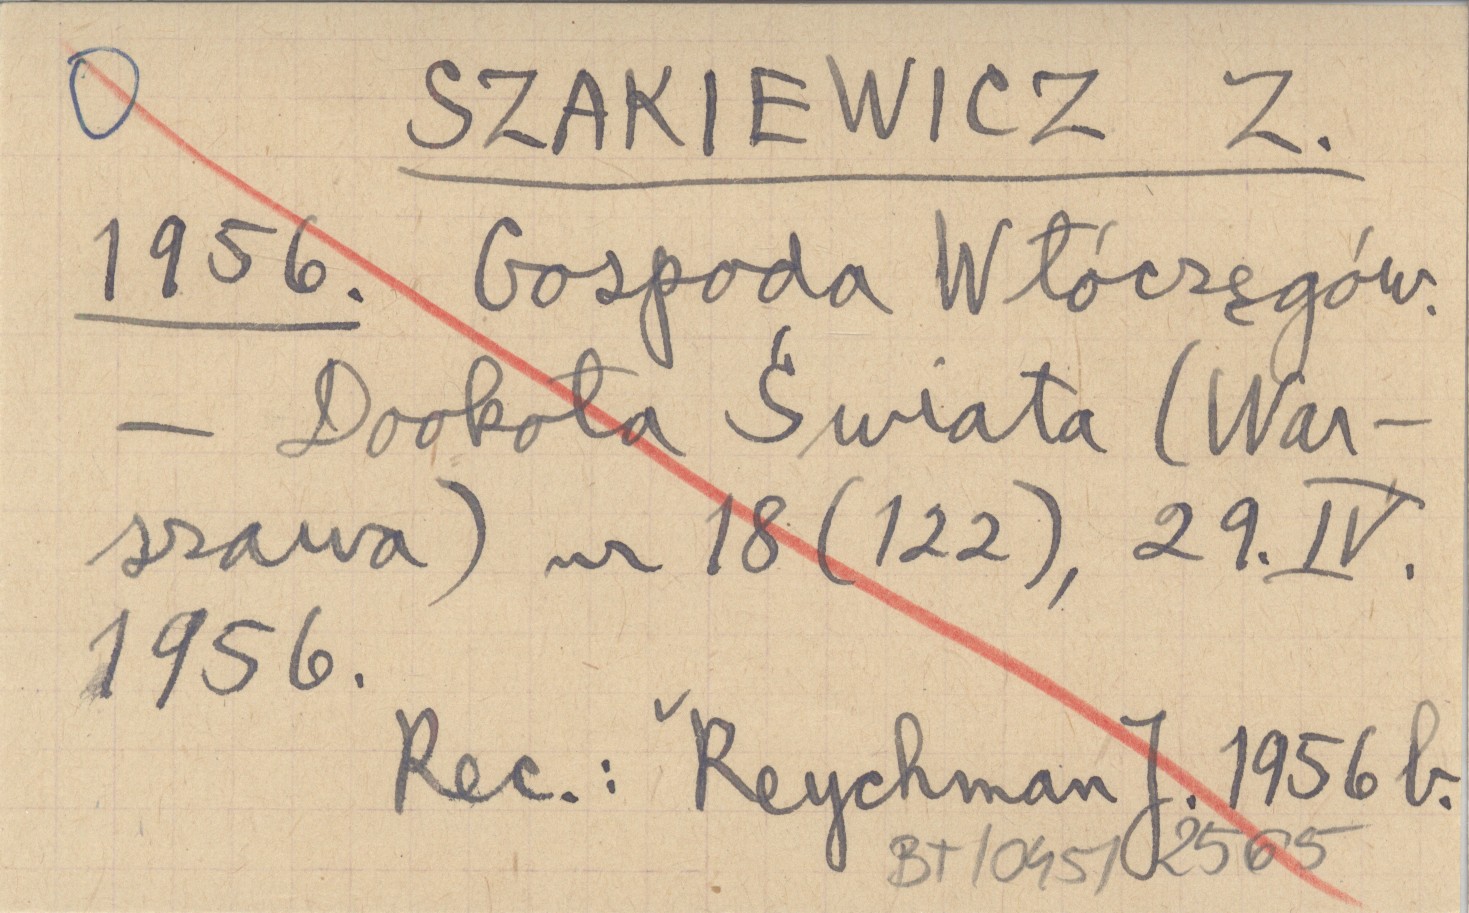 SZAKIEWICZ Z.
1956. Gospoda Włóczęgów.
— Dookoła Świata (War-
szawa) nr 18 (122), 29. IV.
1956.
Rec.: Reychman J. 1956 b.
BT/045/2565